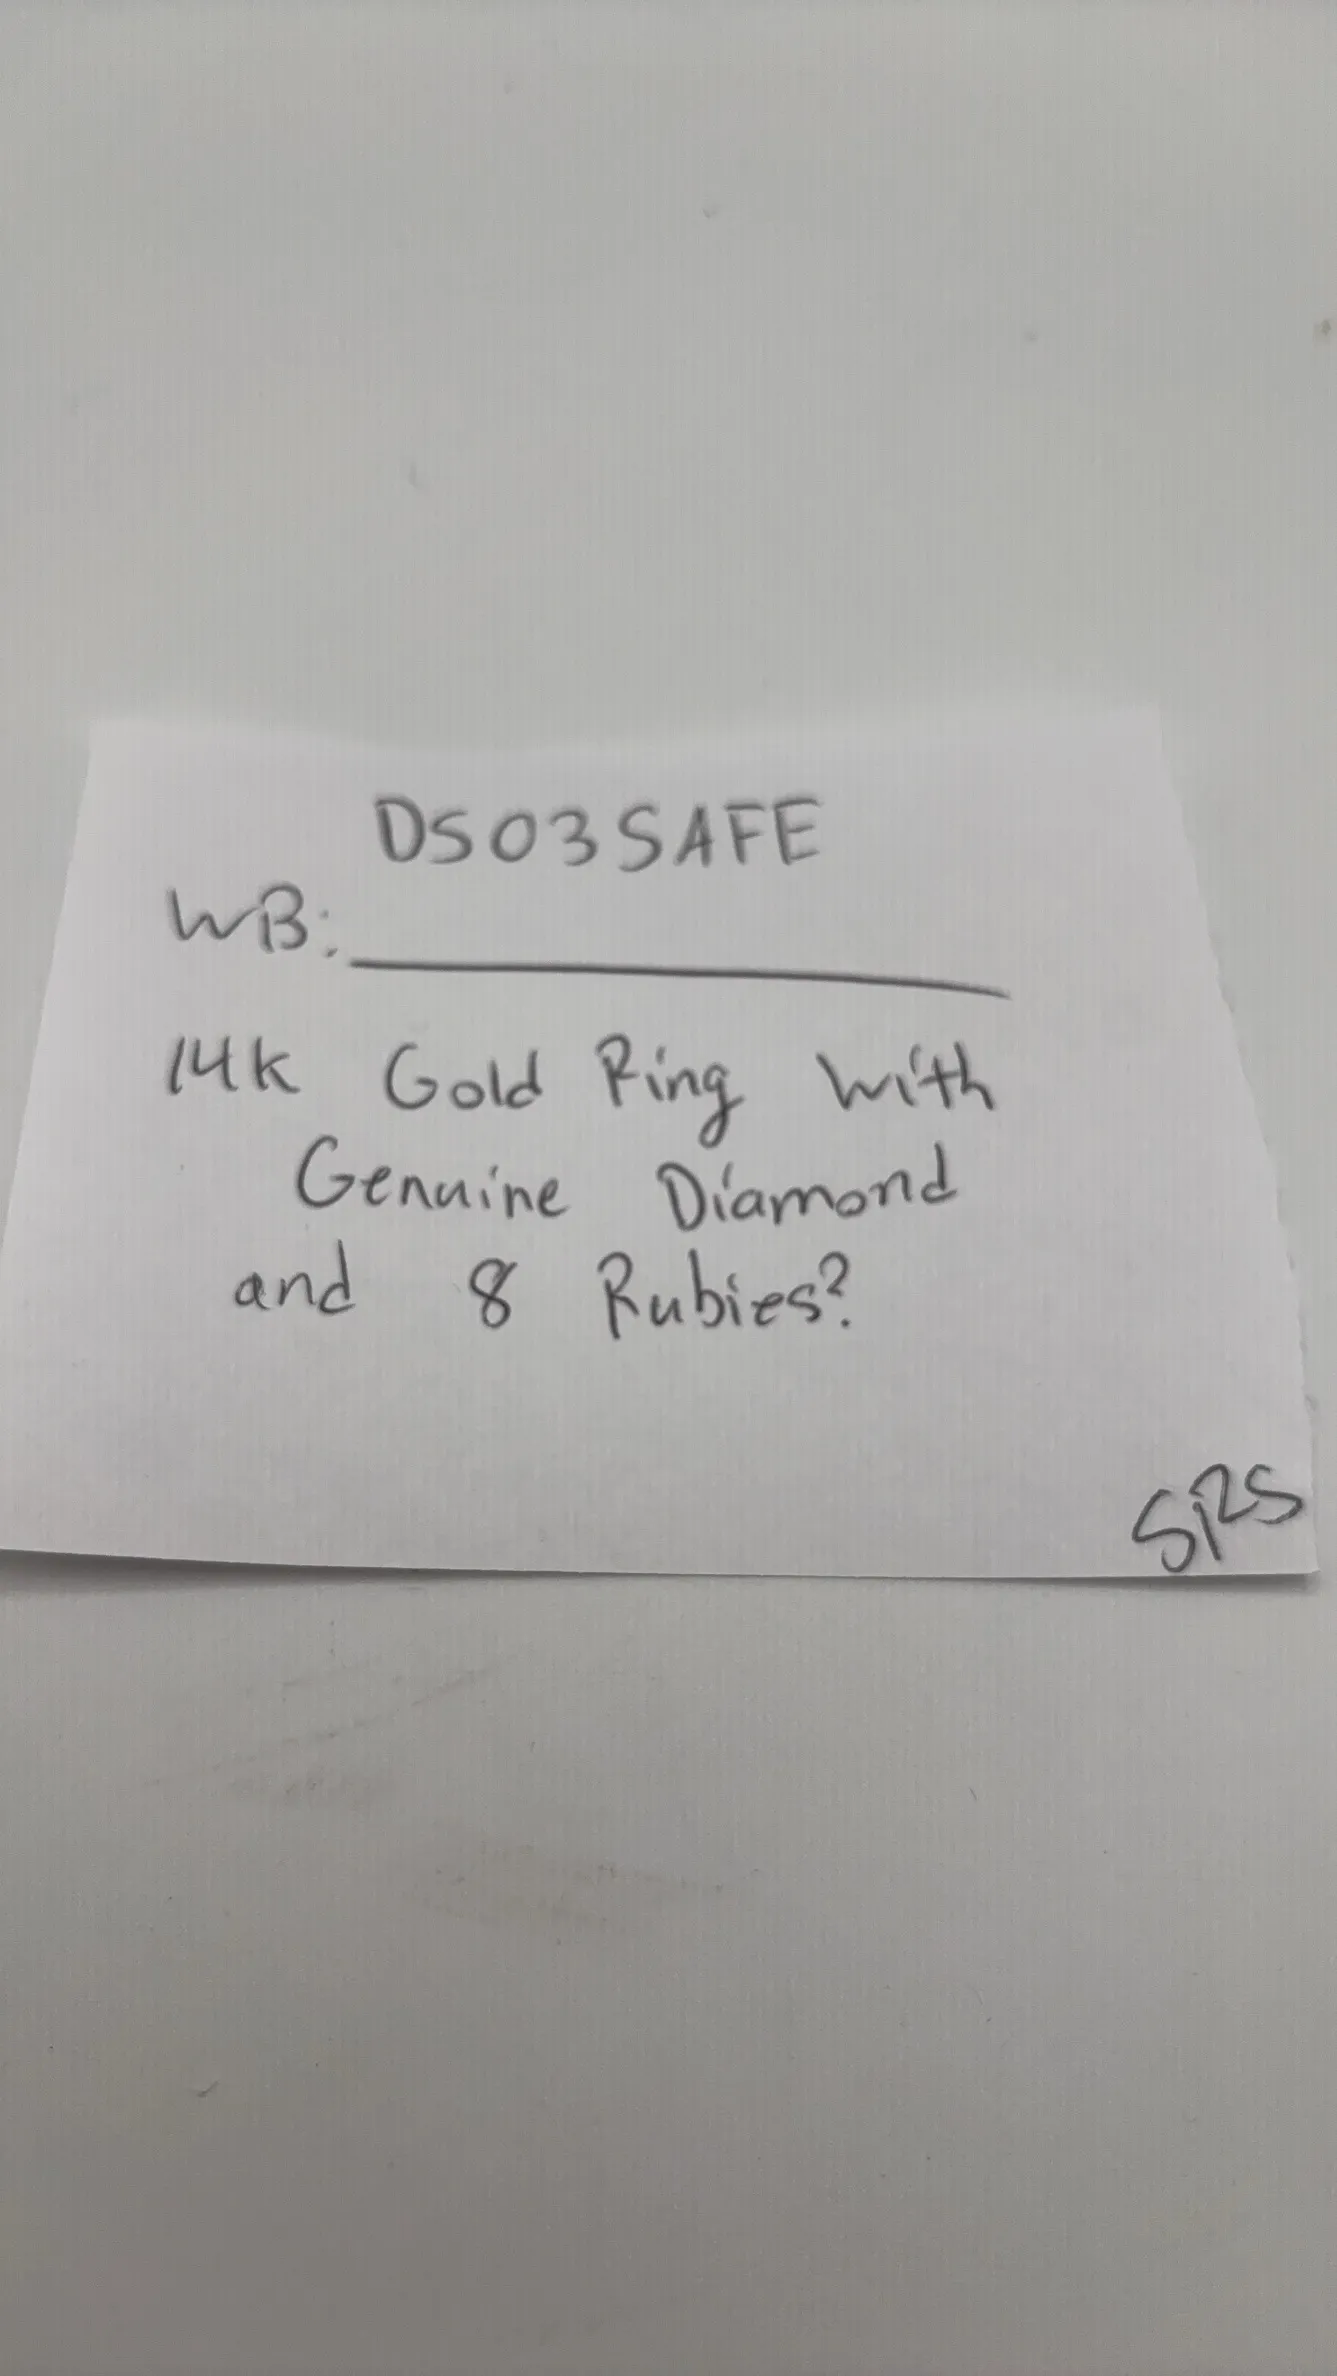 DS03SAFE
WB:
14k Gold Ring with
Genuine Diamond
and 8 Rubies?
SRS